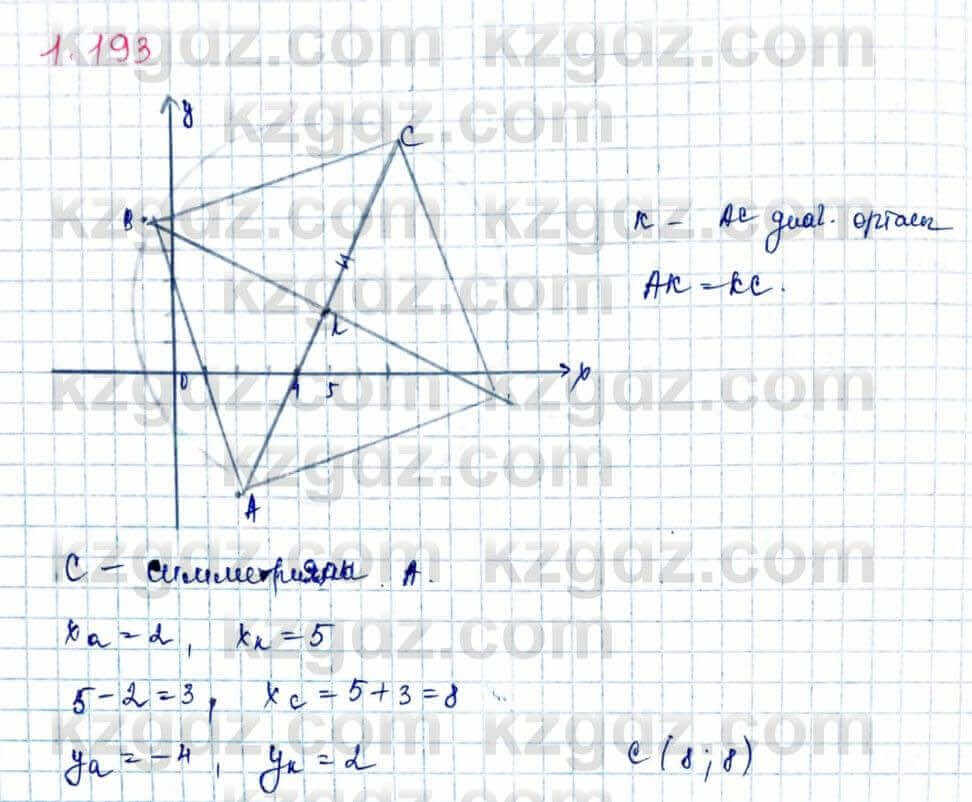 1.193
y
C
B
K
0 4 5 x
A
K – AC диаг. ортасы
AK = KC.
C – симметриялы A.
xa = 2, xк = 5
5 – 2 = 3, xc = 5 + 3 = 8
ya = –4, yк = 2
C (8; 8)
kzgdz.com kzgdz.com
kzgdz.com
kzgdz.com kzgdz.com
kzgdz.com
kzgdz.com kzgdz.com
kzgdz.com
kzgdz.com kzgdz.com
kzgdz.com
kzgdz.com kzgdz.com
kzgdz.com